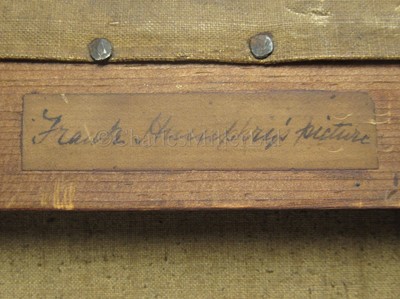 Frank Humphry's picture